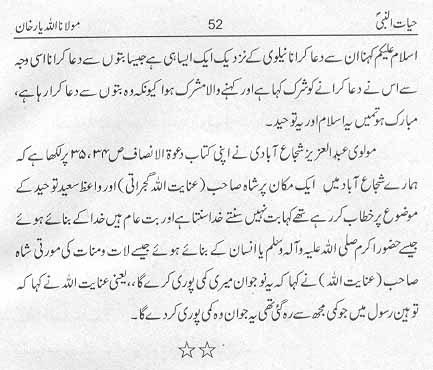 حیات النبیؐ 52 مولانا اللہ یار خان
اسلام علیکم کہنا ان سے دعا کرانا نیلوی کے نزدیک ایک ایسا ہی ہے جیسا بتوں سے دعا کرانا اسی وجہ
سے اس نے دعا کرانے کو شرک کہا ہے اور کہنے والا مشرک ہوا کیونکہ وہ بتوں سے دعا کرا رہا ہے،
مبارک ہو تمہیں یہ اسلام اور یہ توحید۔
مولوی عبدالعزیز شجاع آبادی نے اپنی کتاب دعوۃ الانصاف ص ۳۴، ۳۵ پر لکھا ہے کہ
ہمارے شجاع آباد میں ایک مکان پر شاہ صاحب (عنایت اللہ گجراتی) اور واعظ سعید توحید کے
موضوع پر خطاب کر رہے تھے کہا بت نہیں سنتے خدا سنتا ہے اور بت عام ہیں خدا کے بنائے ہوئے
جیسے حضور اکرم صلی اللہ علیہ وآلہ وسلم یا انسان کے بنائے ہوئے جیسے لات و منات کی مورتی شاہ
صاحب (عنایت اللہ) نے کہا کہ یہ نوجوان میری کمی پوری کرے گا،، یعنی عنایت اللہ نے کہا کہ
توہین رسول میں جو کمی مجھ سے رہ گئی تھی یہ جوان وہ کمی پوری کر دے گا۔
☆☆